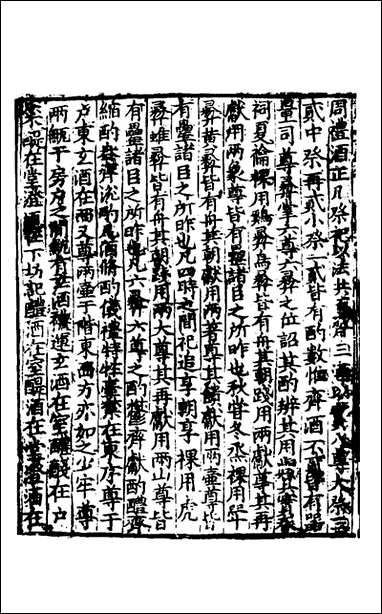 周禮酒正凡祭祀以法共五齊三酒以實八尊大祭三
貳中祭再貳小祭一貳皆有酌數惟齊酒不貳皆有器
量司尊彝掌六尊六彝之位詔其酌辨其用與其實春
祠夏禴祼用鷄彝鳥彝皆有舟其朝踐用兩獻尊其再
獻用兩象尊皆有罍諸臣之所昨也秋嘗冬烝祼用斝
彝黄彝皆有舟其朝獻用兩著尊其饋獻用兩壷尊皆
有罍諸臣之所昨也凡四時之間祀追享朝享祼用虎
彝蜼彝皆有舟其朝踐用兩大尊其再獻用兩山尊皆
有罍諸臣之所昨也凡六彝六尊之酌鬱齊獻酌醴齊
縮酌盎齊涚酌凡酒脩酌儀禮特牲在東序尊于
户東玄酒在西又尊兩壷于階東西方亦如之少牢尊
兩甒于房户之間甒有玄酒禮運玄酒在室醴醆在户
在堂澄酒在下坊記醴酒在室醍酒在堂澄酒在